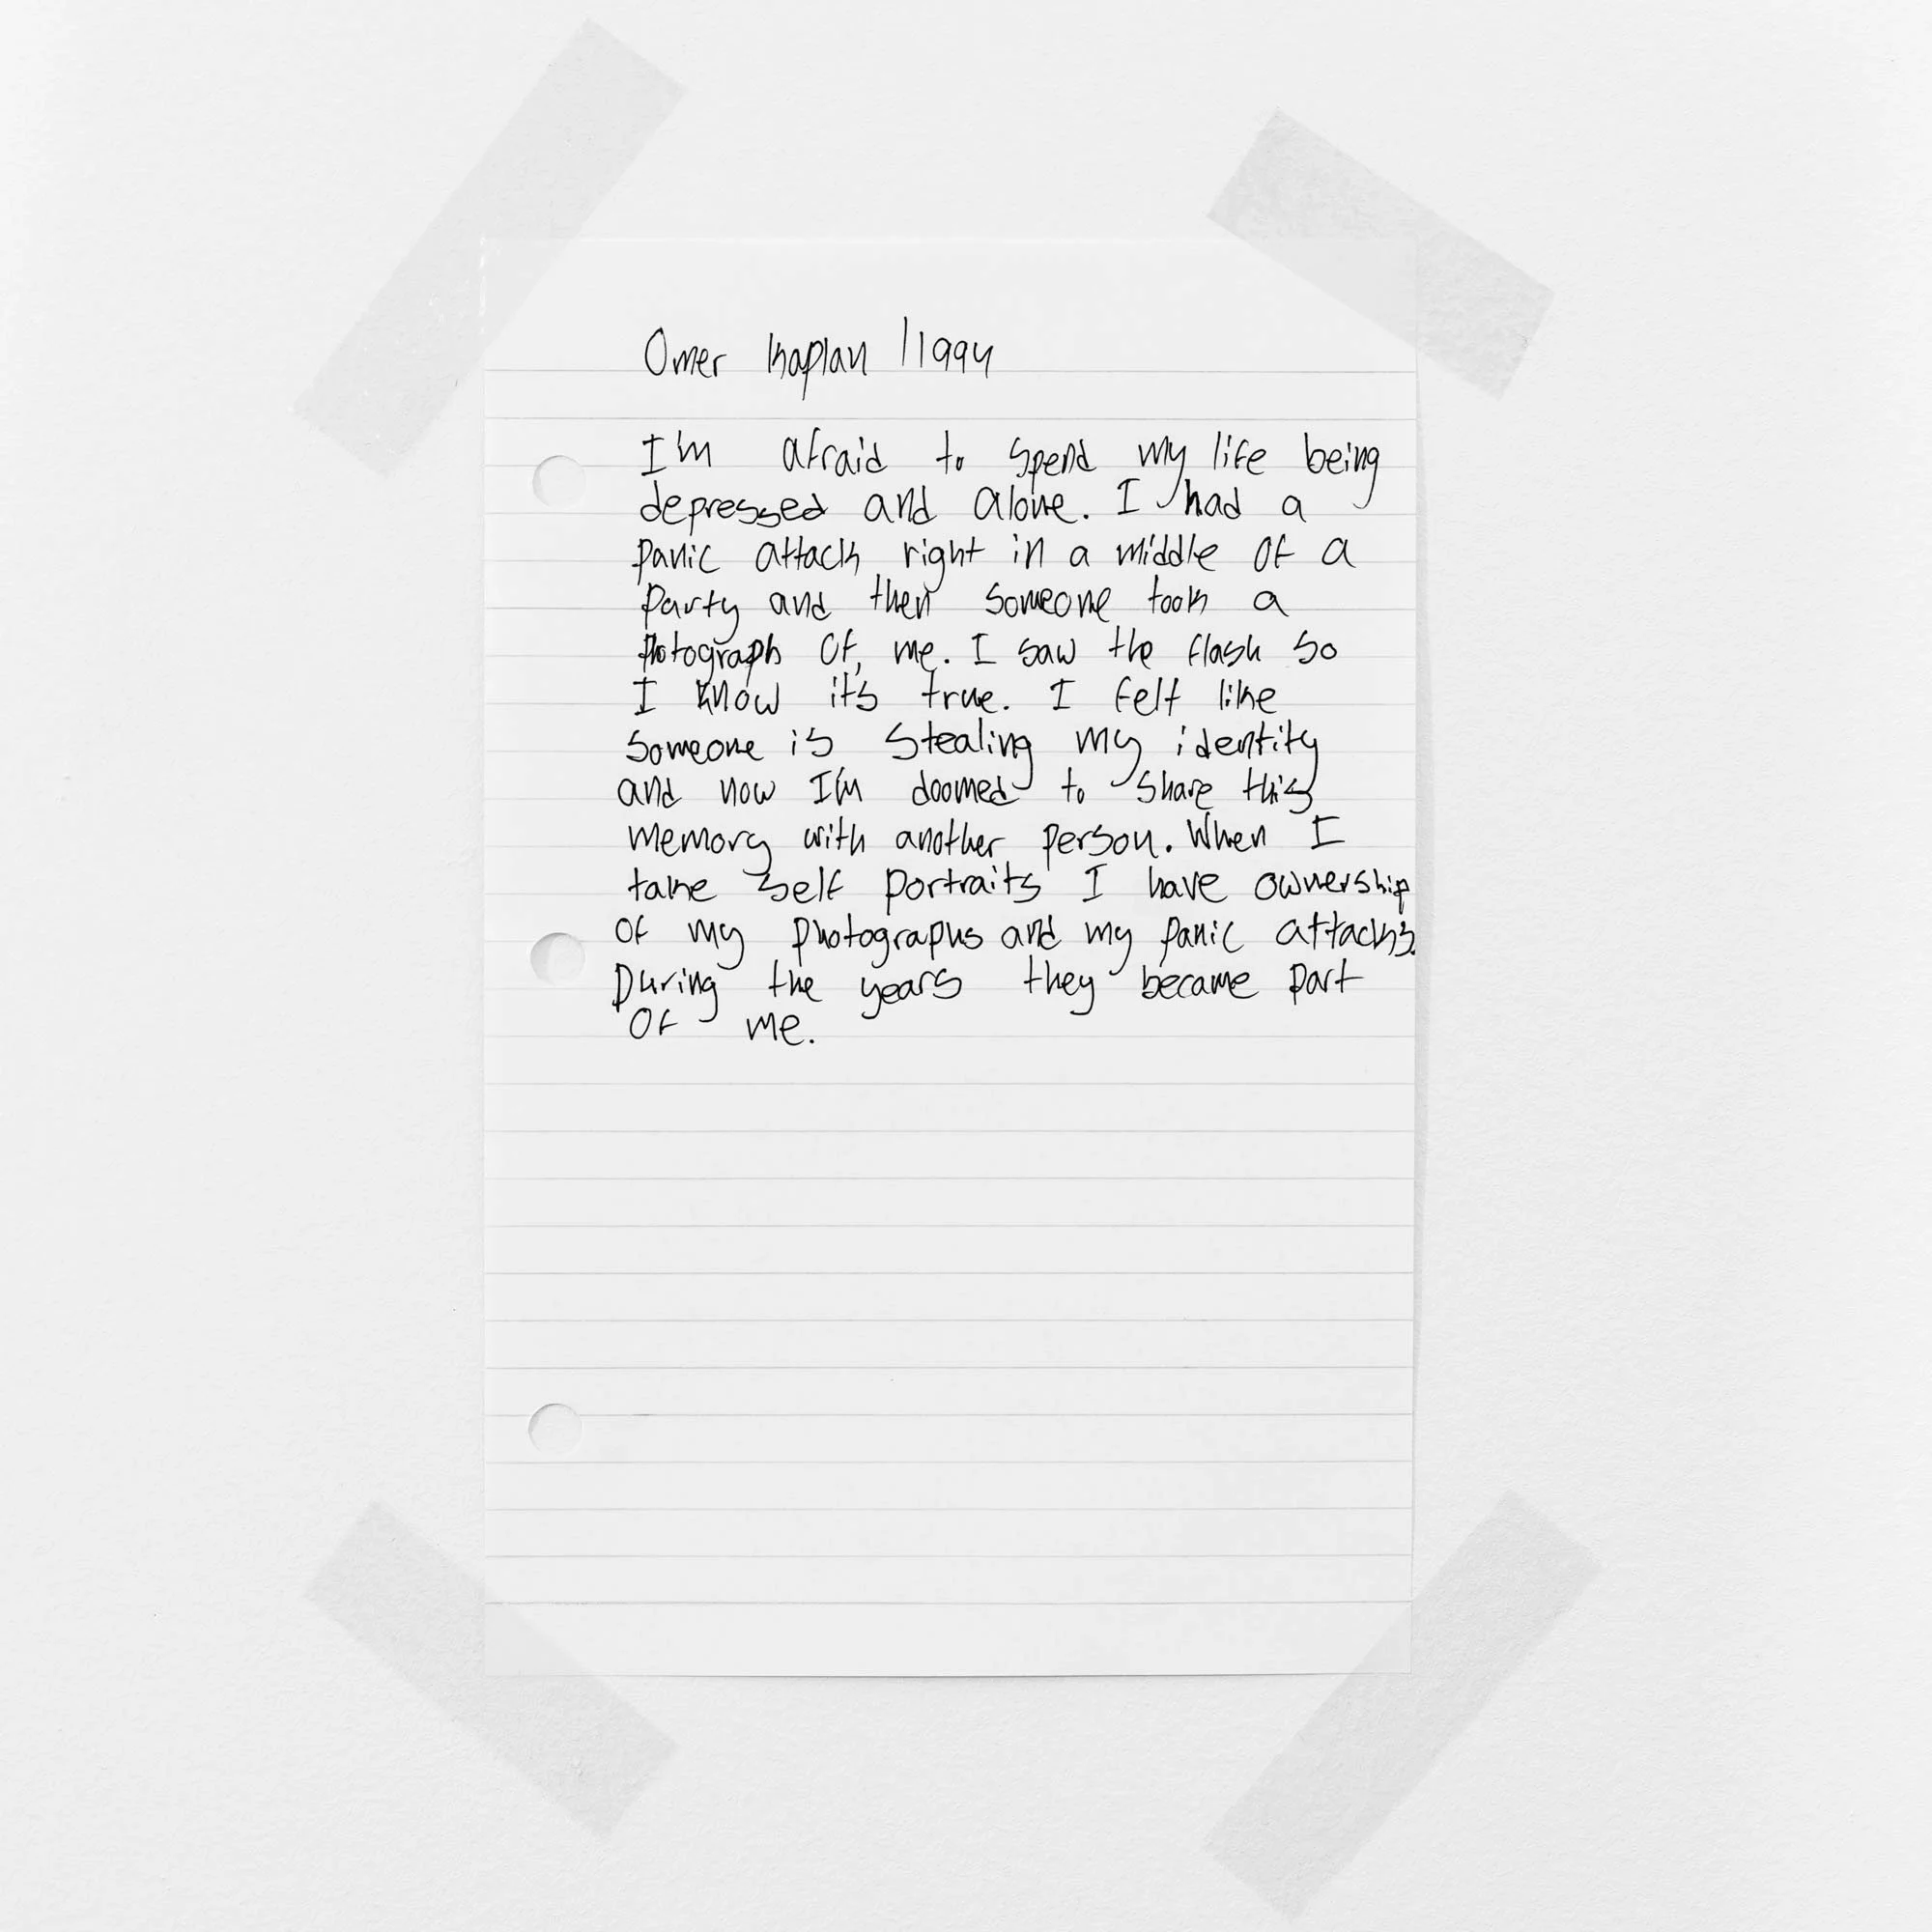 Omer Kaplan / 1994
I'm afraid to spend my life being
depressed and alone. I had a
panic attack right in a middle of a
party and then someone took a
photograph of, me. I saw the flash so
I know it's true. I felt like
someone is stealing my identity
and now I'm doomed to share this
memory with another person. When I
take self portraits I have ownership
of my photographs and my panic attacks.
During the years they became part
of me.